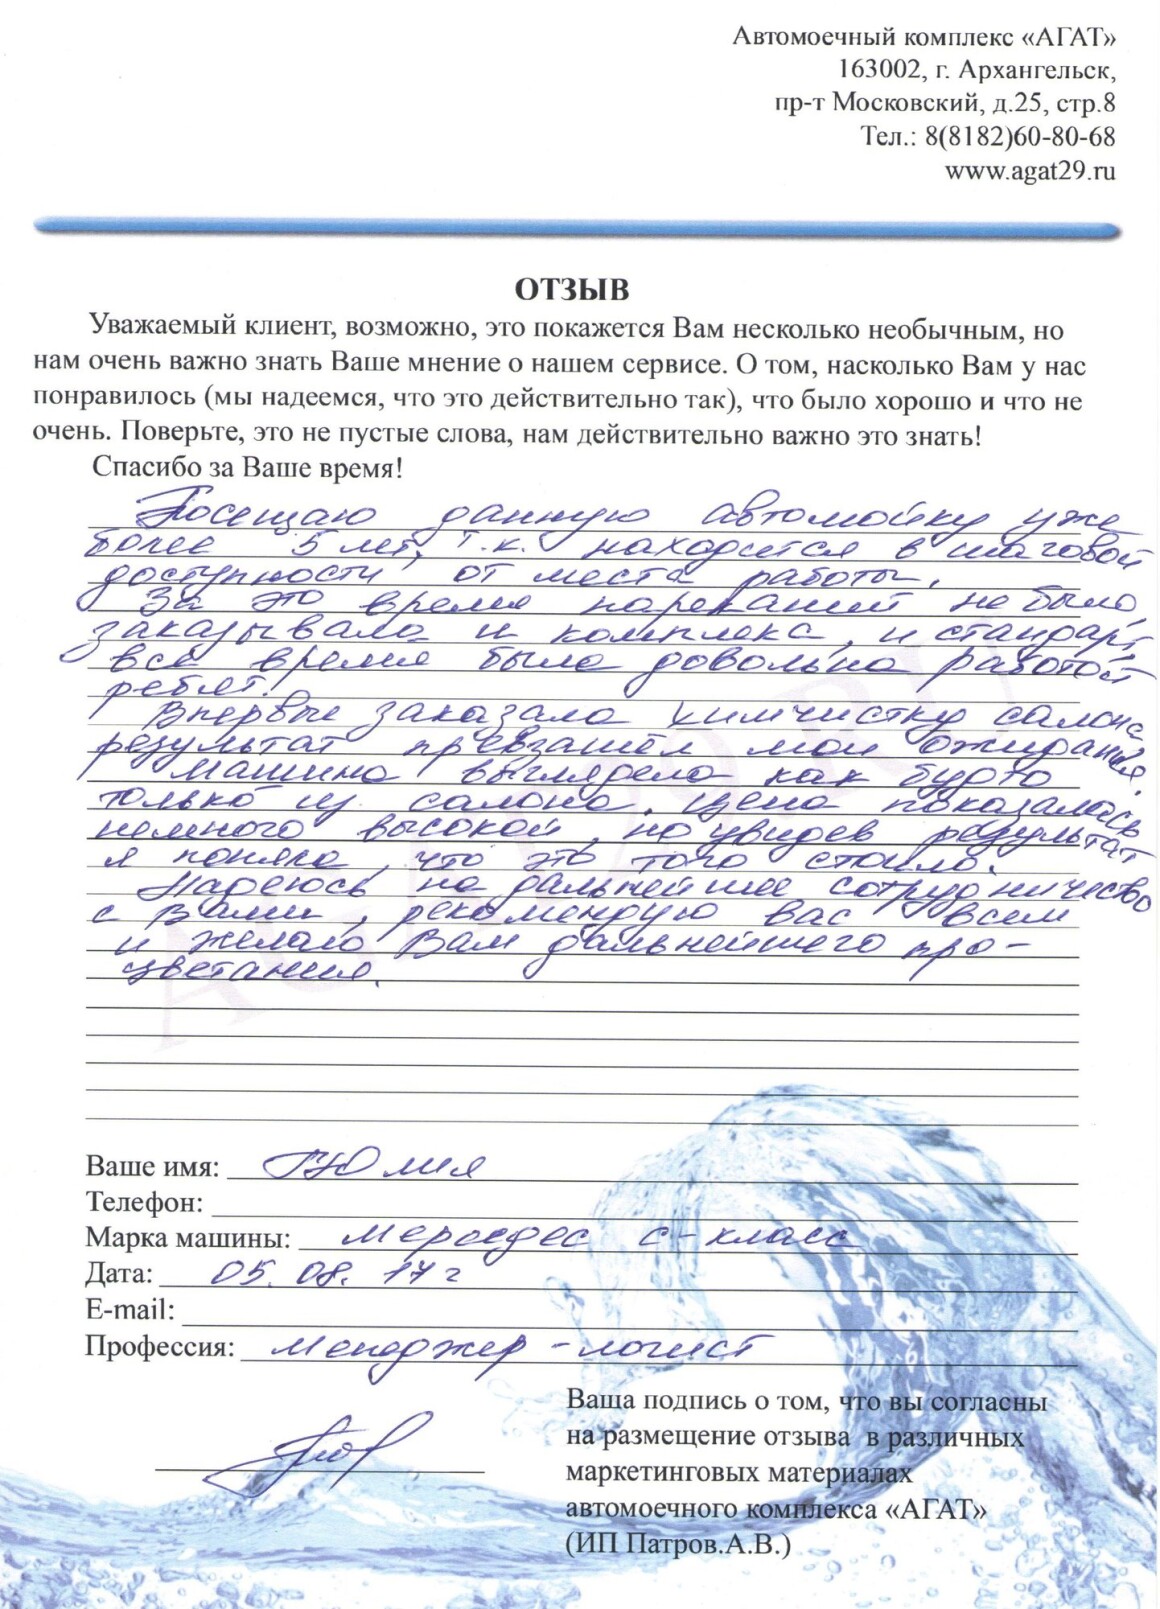 Автомоечный комплекс «АГАТ»
163002, г. Архангельск,
пр-т Московский, д.25, стр.8
Тел.: 8(8182)60-80-68
www.agat29.ru
ОТЗЫВ
Уважаемый клиент, возможно, это покажется Вам несколько необычным, но
нам очень важно знать Ваше мнение о нашем сервисе. О том, насколько Вам у нас
понравилось (мы надеемся, что это действительно так), что было хорошо и что не
очень. Поверьте, это не пустые слова, нам действительно важно это знать!
Спасибо за Ваше время!
Посещаю данную автомойку уже
более 5 лет, т.к. находится в шаговой
доступности от места работы.
За это время нареканий не было,
заказывала и комплекс, и стандарт,
все время была довольна работой
ребят.
Впервые заказала химчистку салона
результат превзашёл мои ожидания.
Машина выглядела как будто
только из салона. Цена показалась
немного высокой, но увидев результат
я поняла, что это того стоило.
Надеюсь на дальнейшее сотрудничество
с Вами, рекомендую вас всем
и желаю Вам дальнейшего про-
цветания.
AGAT29.RU
Ваше имя: Юлия
Телефон:
Марка машины: Мерседес С-класс
Дата: 05.08.17г
E-mail:
Профессия: Менеджер-логист
Ваша подпись о том, что вы согласны
на размещение отзыва в различных
маркетинговых материалах
автомоечного комплекса «АГАТ»
(ИП Патров.А.В.)